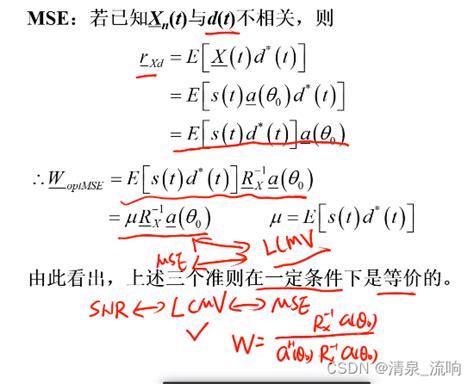 MSE：若已知X_n(t)与d(t)不相关，则
r_{Xd} = E[X(t)d^*(t)]
= E[s(t)a(θ_0)d^*(t)]
= E[s(t)d^*(t)]a(θ_0)
∴W_{optMSE} = E[s(t)d^*(t)]R_X^{-1}a(θ_0)
= μR_X^{-1}a(θ_0) μ = E[s(t)d^*(t)]
MSE LCMV
由此看出，上述三个准则在一定条件下是等价的。
SNR ↔ LCMV ↔ MSE
✓ W = \frac{R_x^{-1} a(θ_0)}{a^H(θ_0) R_x^{-1} a(θ_0)}
CSDN @清泉_流响